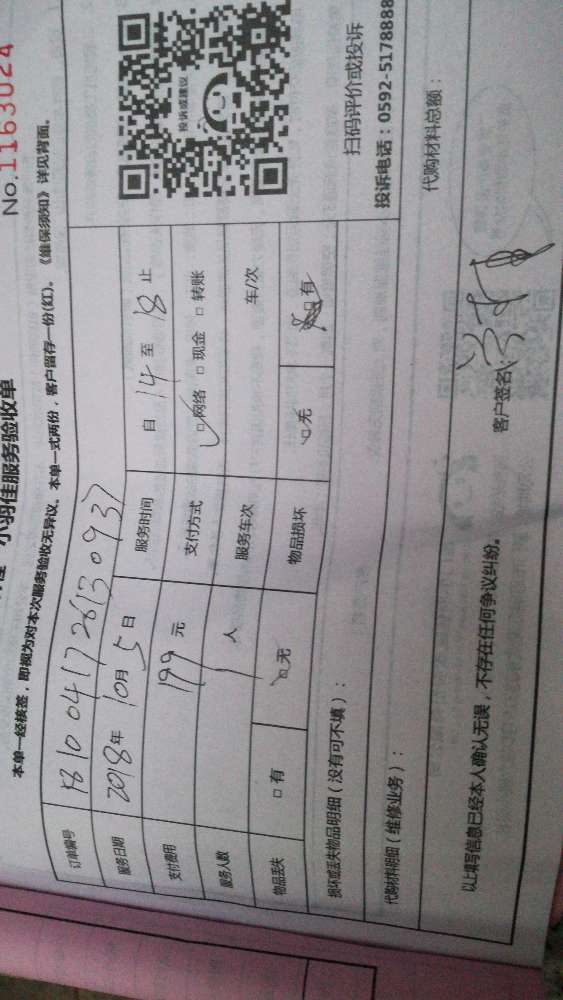 No.1163024
小羽佳服务验收单
本单一经核签，即视为对本次服务验收无异议。本单一式两份，客户留存一份(红)。《维保须知》详见背面。
订单编号 1810041726130937
服务日期 2018年10月5日 服务时间 自14至18止
支付费用 199元 支付方式 □网络 □现金 □转账
服务人数 1人 服务车次 车/次
物品丢失 □有 □无 物品损坏 □无 □有
投诉或建议
扫码评价或投诉
损坏或丢失物品明细（没有可不填）：
投诉电话：0592-5178888
代购材料明细（维修业务）： 代购材料总额：
以上填写信息已经本人确认无误，不存在任何争议纠纷。 客户签名